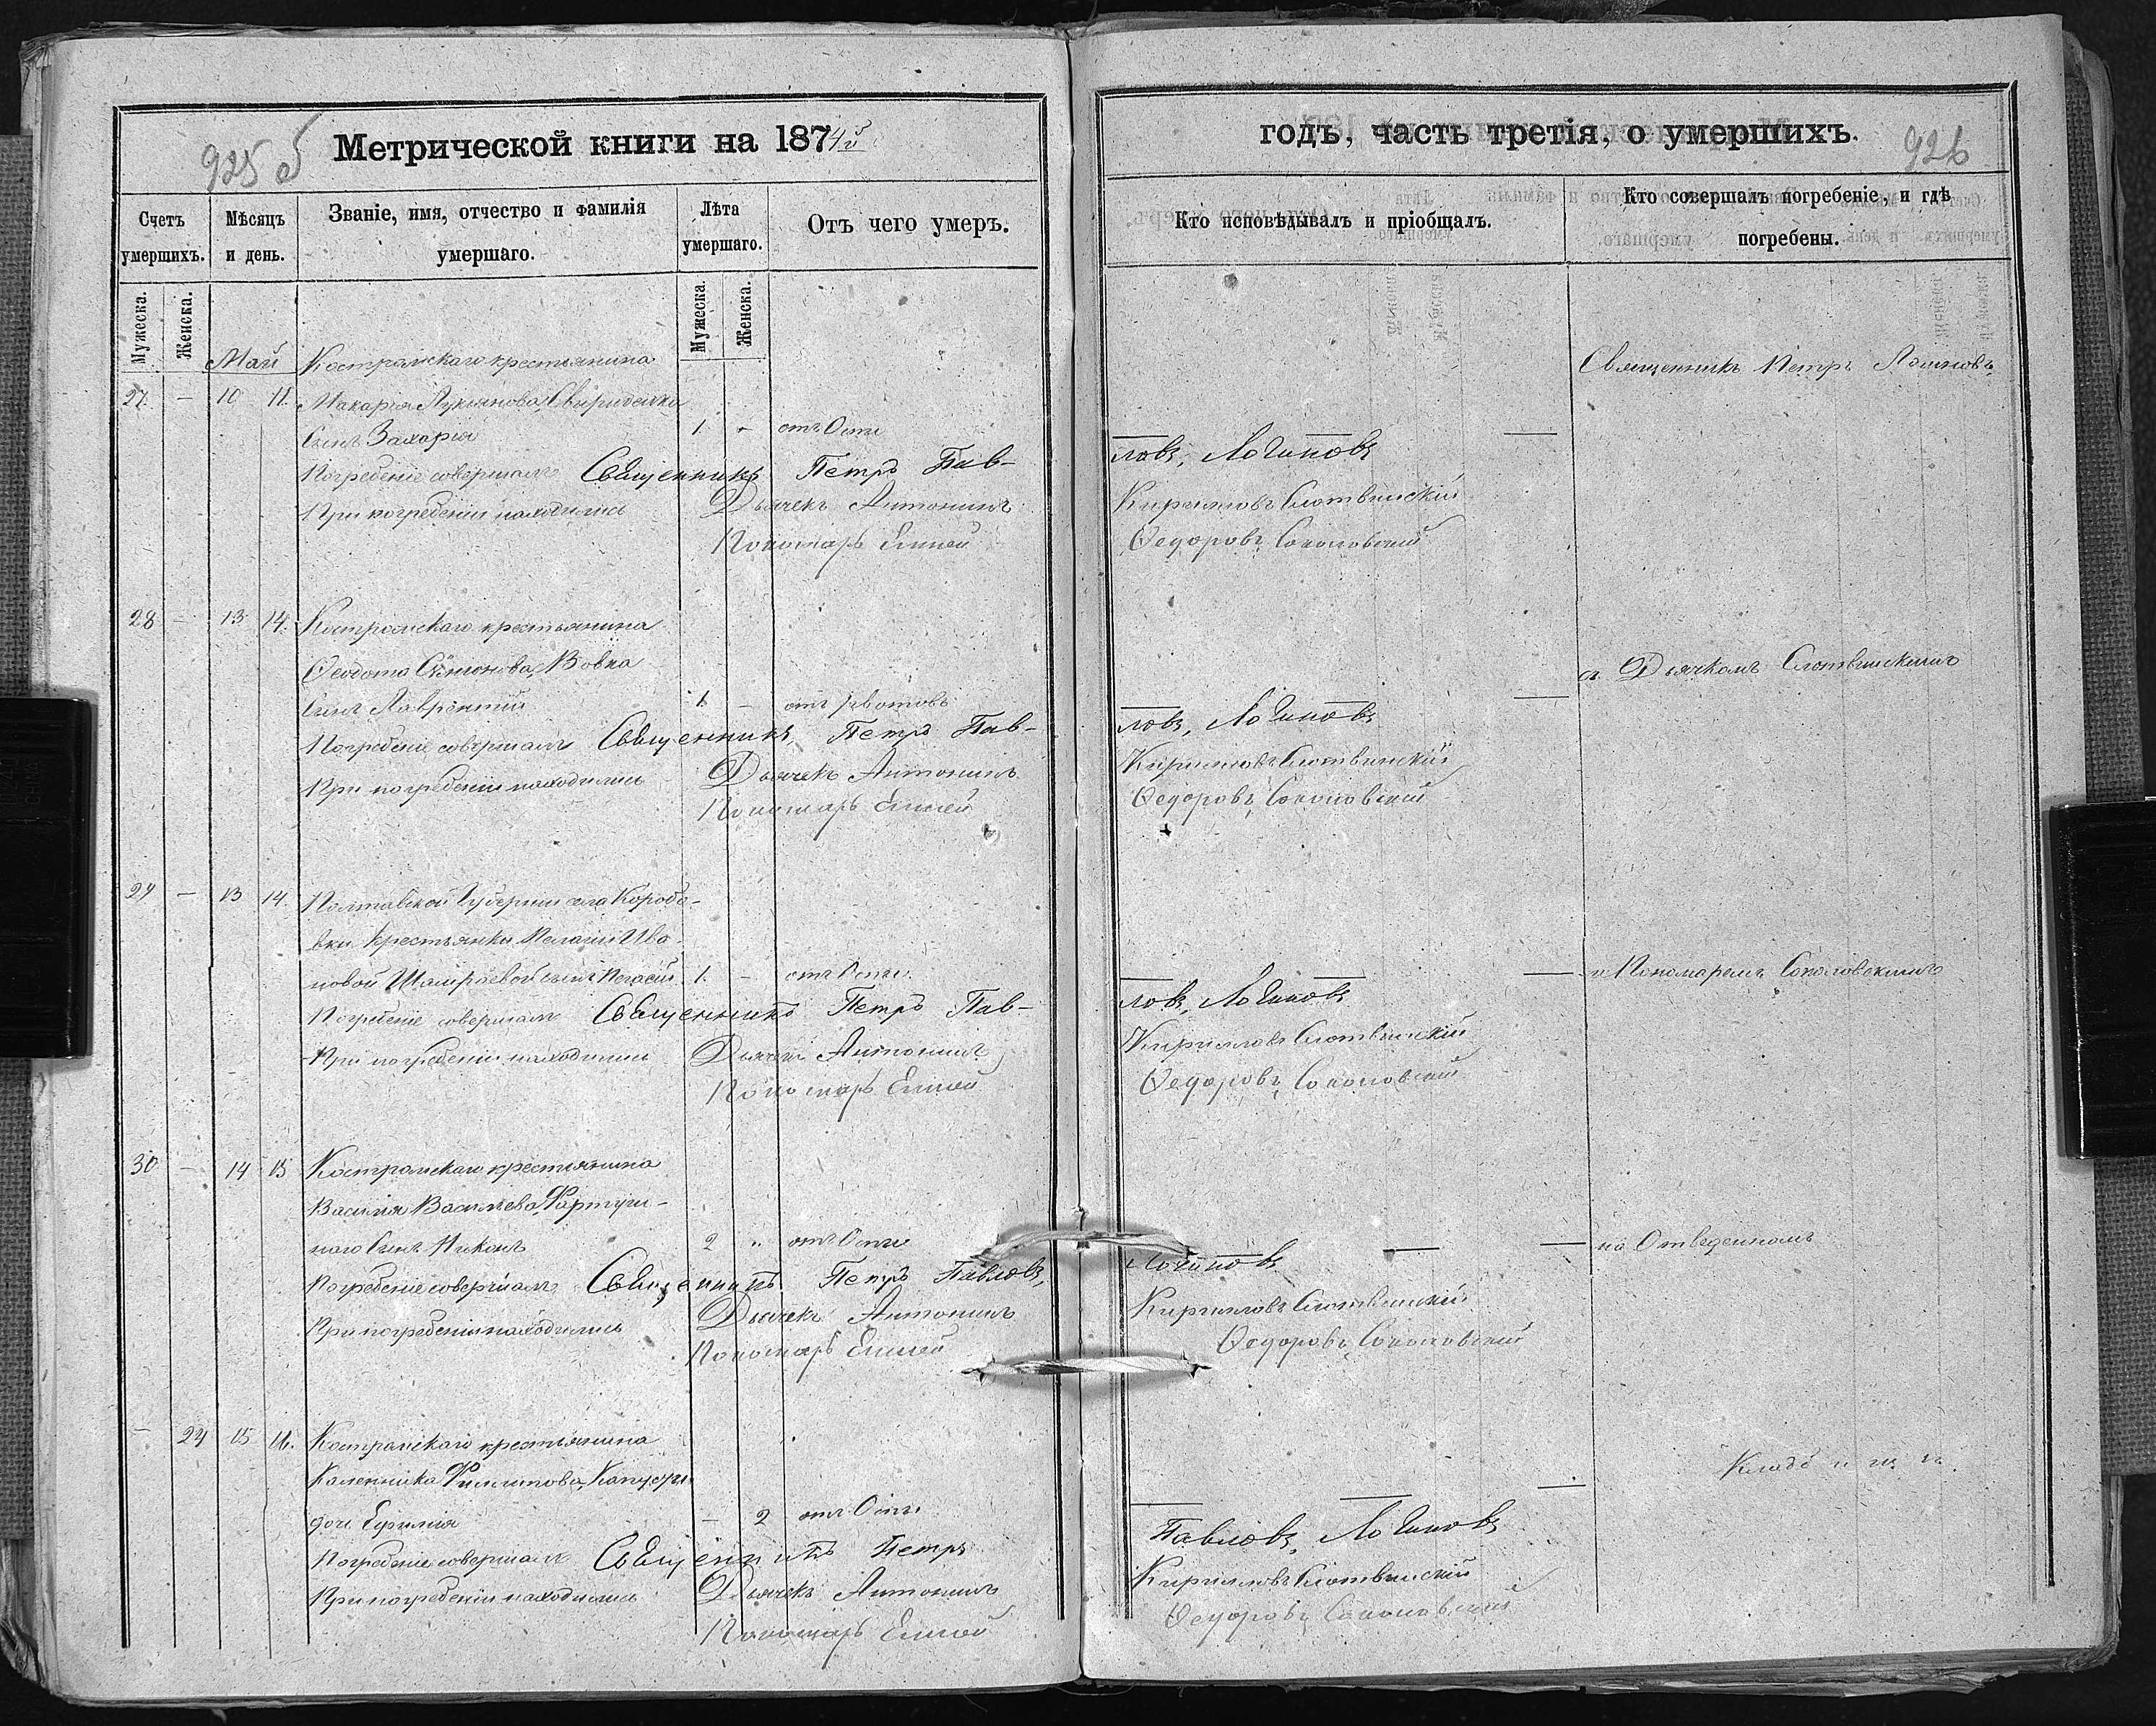 925 б
Метрической книги на 1874й
Счетъ умершихъ.
Мѣсяцъ и день.
Званіе, имя, отчество и фамилія умершаго.
Лѣта умершаго.
Отъ чего умеръ.
Мужеска.
Женска.
Мужеска.
Женска.
Май
Костромскаго крестьянина
27. — 10 11. Макарія Лукьянова Свириденка
Сынъ Захарія 1. - отъ Оспы
Погребеніе совершалъ Священникъ Петръ Пав-
При погребеніи находились Дьячекъ Антонинъ
Пономарь Елисей
28 — 13 14. Костромскаго крестьянина
Ѳеодота Семіонова Вовка
сынъ Лаврентій 1. — отъ рвотовъ
Погребеніе совершалъ Священникъ Петръ Пав-
При погребеніи находились Дьячекъ Антонинъ
Пономарь Елисей
29 — 13 14 Полтавской Губерніи села Коробо-
вки крестьянки Меланіи Ива-
новой сынъ 1. — отъ Оспы
Погребеніе совершалъ Священникъ Петръ Пав-
При погребеніи находились Дьячекъ Антонинъ
Пономарь Елисей
30 — 14 15 Костромскаго крестьянина
Василія Васильева
Сынъ Никонъ 2 " отъ Оспы
Погребеніе совершалъ Священникъ Петръ Павловъ,
При погребеніи находились Дьячекъ Антонинъ
Пономарь Елисей
— 15 16. Костромскаго крестьянина
Каленника Филиппова
дочь — 2 отъ Оспы
Погребеніе совершалъ Священникъ Петръ
При погребеніи находились Дьячекъ Антонинъ
Пономарь Елисей
годъ, часть третія, о умершихъ.
926
Кто исповѣдывалъ и пріобщалъ.
Кто совершалъ погребеніе, и гдѣ погребены.
Священникъ Петръ Логиновъ
ловъ, Логиновъ
Кирилловъ Слотвинскій
Ѳедоровъ Соколовскій
съ Дьячкомъ Слотвинскимъ
ловъ, Логиновъ
Кирилловъ Слотвинскій
Ѳедоровъ Соколовскій
и Пономаремъ Соколовскимъ
ловъ, Логиновъ
Кирилловъ Слотвинскій
Ѳедоровъ Соколовскій
на Отведенномъ
Логиновъ
Кирилловъ Слотвинскій
Ѳедоровъ Соколовскій
Кладбищѣ.
Павловъ, Логиновъ
Кирилловъ Слотвинскій
Ѳедоровъ Соколовскій